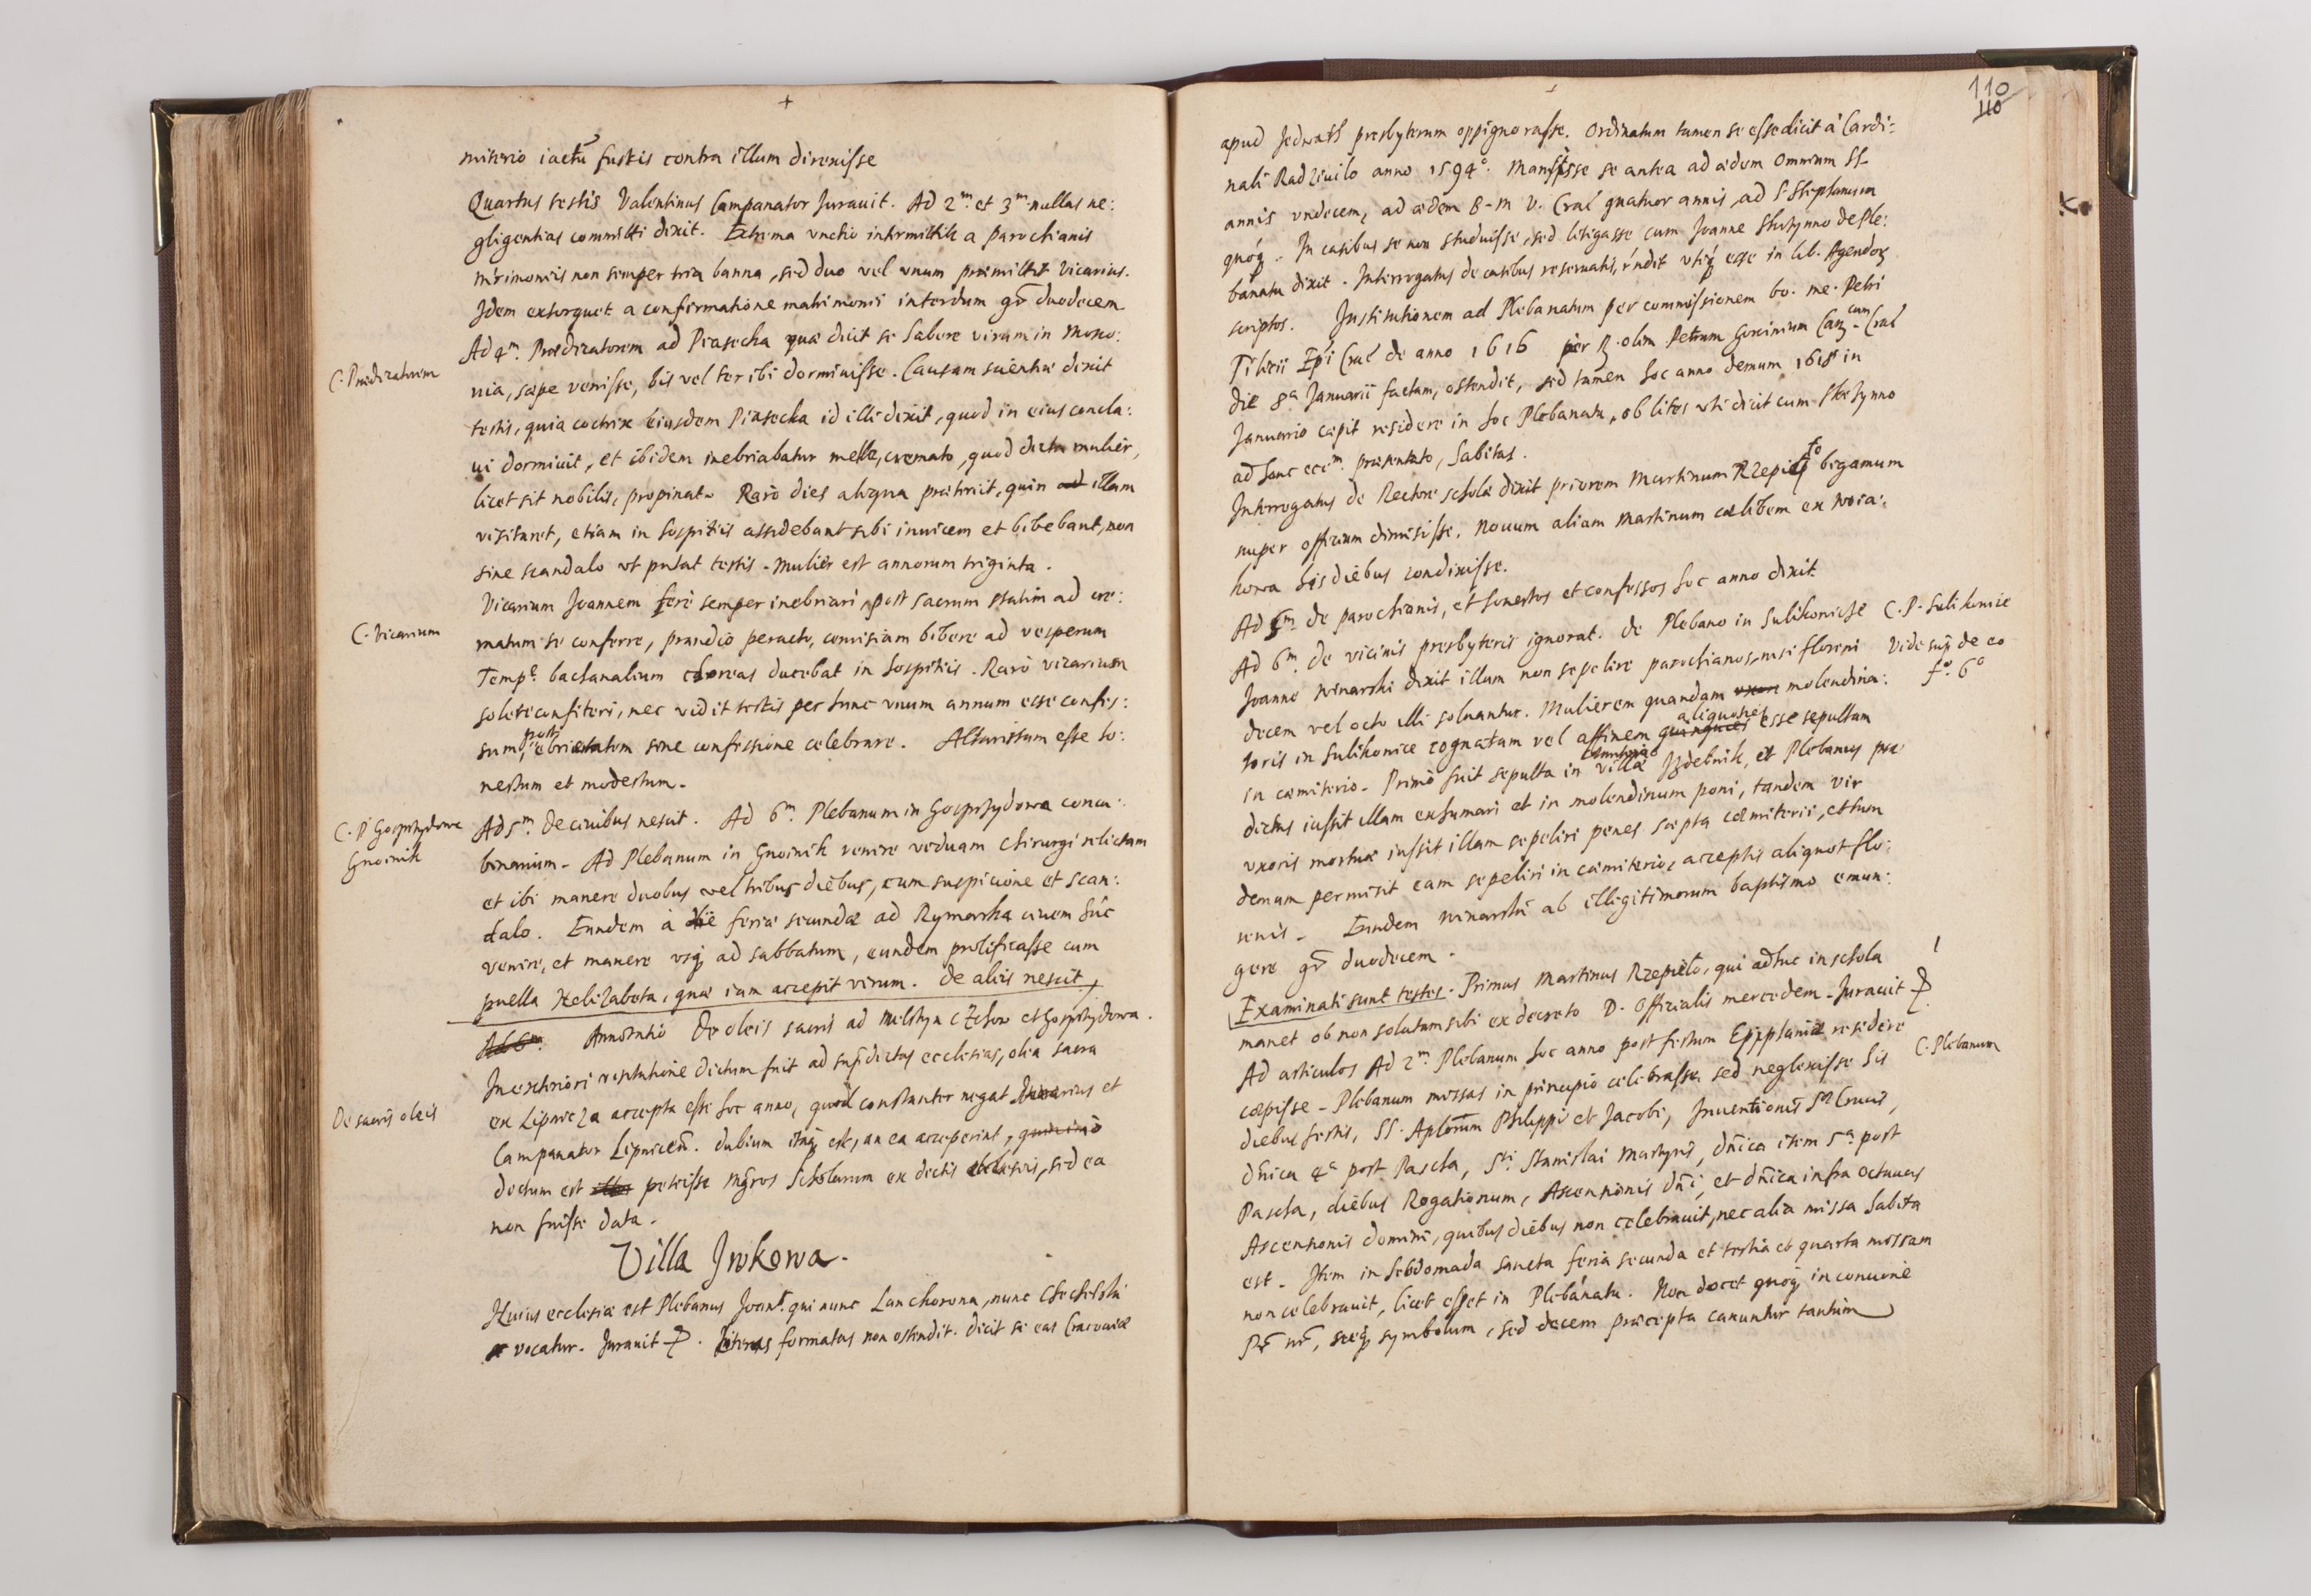 +
miterio iactū fustis contra illum direxisse
Quartus testis Valentinus Campanator Jurauit. Ad 2m. et 3m. nullas ne:
gligentias committi dixit. Extrema vnctio intermittit a parochianis
mr̄imoniis non semper tria banna, sed duo vel vnum praemittit Vicarius.
Idem extorquet a confirmatione matrimonii interdum gr̄ duodecem
C. Praedicatorem
Ad 4m. Praedicatorem ad Piasecka quae dicit se habere virum in Mosco:
uia, saepe venisse, bis vel ter ibi dormiuisse. Causam scientiae dixit
testis, quia coctrix eiusdem Piasecka id illi dixit, quod in eius concla:
ui dormiuit, et ibidem inebriabatur melle, cremato, quod dicta mulier,
licet sit nobilis, propinat. Raro dies aliqua praeteriit, quin ad illam
visitaret, etiam in hospitiis assidebant sibi inuicem et bibebant, non
sine scandalo vt putat testis. Mulier est annorum triginta.
C. Vicarium
Vicarium Joannem fere semper inebriari, post sacrum statim ad cre:
matum se conferre, prandio peracto, ceruisiam bibere ad vesperum
Tempe. bachanalium choreas ducebat in hospitiis. Raro vicarium
solere confiteri, nec vidit testis per hunc vnum annum esse confes:
sum, post ebrietatem sine confessione celebrare. Altaristam esse ho:
nestum et modestum.
C. P. Gosprzydowa
Gnoinik
Ad 5m. De ciuibus nescit. Ad 6m. Plebanum in Gosprzydowa concu:
binarium. Ad Plebanum in Gnoinik venire viduam Chirurgi relictam
et ibi manere duobus vel tribus diebus, cum suspicione et scan:
dalo. Eundem à die feriae secundae ad Rymarska ciuem hūc
venire, et manere vsq; ad sabbatum, eundem prolificasse cum
puella Helizabeta, quae iam accepit virum. De aliis nescit
Ad 6m. Annotatio De oleis sacris ad Melstyn Czchow et Gosprzydowa.
De sacris oleis
In exteriori visitatione dictum fuit ad supdictas ecclesias, olea sacra
ex Lipnicza accepta esse hoc anno, quod constanter negat et
Campanator Lipnicen̄. Dubium itaq; est, an ea acceperint,
dictum est petiisse mgr̄os Scholarum ex dictis ecclesiis, sed ea
non fuisse data.
Villa Jwkowa.
Huius ecclesiae est Plebanus Joan. qui nunc Lanchorona, nunc
vocatur. Jurauit. literas formatas non ostendit. dicit se eas Cracouiae
110
110
apud presbyterum oppignorasse. Ordinatum tamen se esse dicit à Cardi:
nali Radziuilo anno 1594o. Mansisse se antea ad aedem Omnium SS.
annis vndecem, ad aedem B. M. V. Crac̄ quatuor annis, ad S. Stephanum
quoq;. In casibus se non studuisse, sed litigasse cum Joanne de Ple:
banatu dixit. Interrogatus de casibus reseruatis, rn̄dit vtiq; esse in lib. Agendoꝝ
scriptos. Institutionem ad Plebanatum per commissionem bo. me. Petri
Tilicii Epī Crac̄ de anno 1616 per R. olim Petrum Gorcinium Can̄cum. Crac̄
die 8a Januarii factam, ostendit, sed tamen hoc anno demum 1618 in
Januario caepit residere in hoc Plebanatu, ob lites vti dicit cum
ad hanc eccm. praesentato, habitas.
Interrogatus de Rectore scholae dixit priorem Martinum bigamum
nuper officium dimisisse. Nouum alium Martinum caelibem ex
kowa his diebus condixisse.
Ad 5m. de parochianis, et honestos et confessos hoc anno dixit.
Ad 6m. De vicinis presbyteris ignorat. De Plebano in Sulikowice
C. P. Sulikowic
Vide sup̄ de eo
fo. 6o
Joanne Winarski dixit illum non sepelire parochianos, nisi floreni
decem vel octo illi soluantur. Mulierem quandam molendina:
toris in Sulikowice cognatam vel affinem aliquoties esse sepultam
in caemiterio. Primo fuit sepulta in villa Jzdebnik, et Plebanus prae
dictus iussit illam exhumari et in molendinum poni, tandem vir
vxoris mortuae iussit illam sepeliri penes septa caemiterii, et tum
demum permisit eam sepeliri in caemiterio, acceptis aliquot flo:
renis. Eundem Winarski ab illegitimorum baptismo emun:
gere gr̄ duodecem.
Examinati sunt testes. Primus Martinus, qui adhuc in schola
manet ob non solutam sibi ex decreto D. Officialis mercedem. Jurauit
1
Ad articulos Ad 2m. Plebanum hoc anno post festum Epiphaniae residere
C. Plebanum
caepisse. Plebanum missas in principio celebrasse, sed neglexisse his
diebus festis, SS. Aplōrum Philippi et Jacobi, Inuentionis Sae Crucis,
dn̄ica 4a post Pascha, Sti Stanislai Martyris, dn̄ica item 5a post
Pascha, diebus Rogationum, Ascensionis Dn̄i, et dn̄ica infra octauas
Ascensionis domini, quibus diebus non celebrauit, nec alia missa habita
est. Item in hebdomada sancta feria secunda et tertia et quarta missam
non celebrauit, licet esset in Plebanatu. Non docet quoq; in concione
Pr̄ nr̄, neq; symbolum, sed decem praecepta canuntur tantum